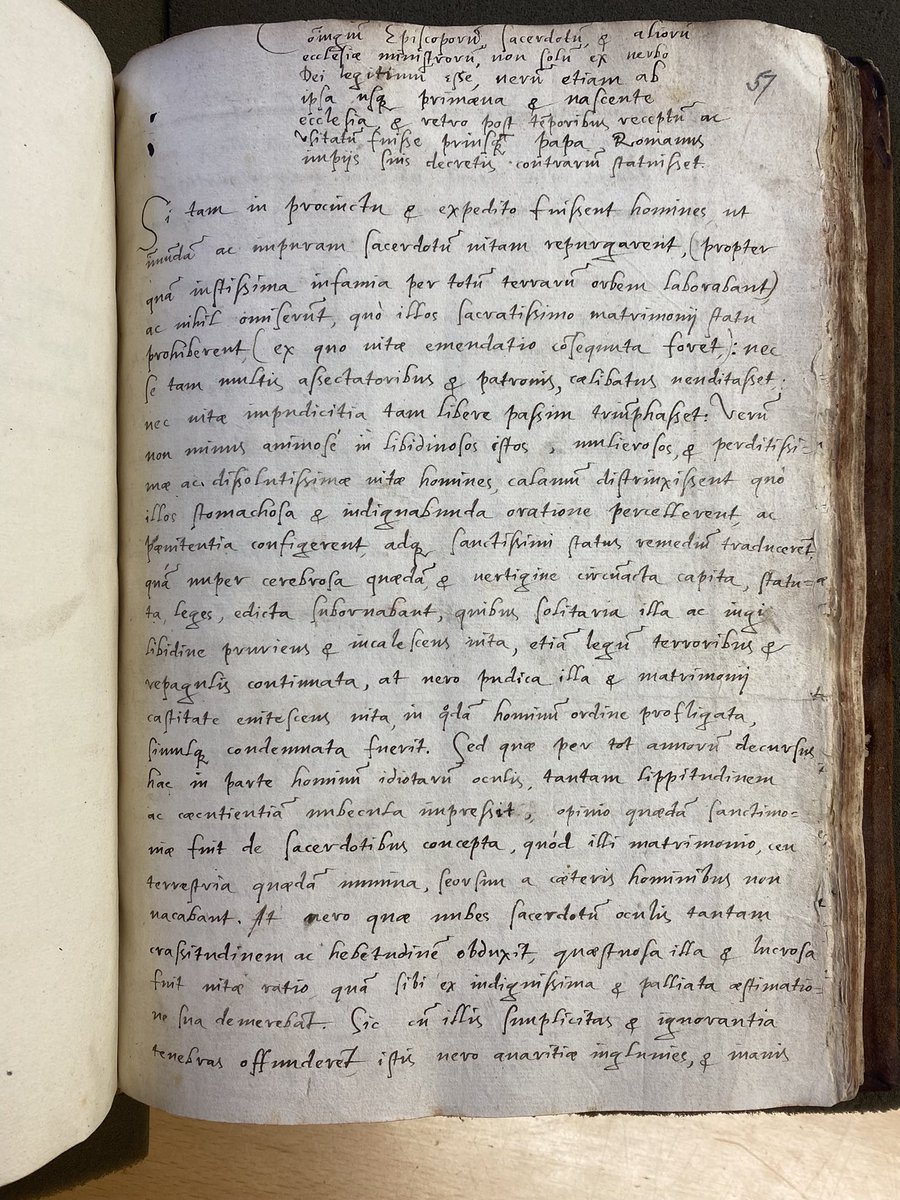 Cōiugiū Episcoporū, sacerdotū, & aliorū
ecclesiæ ministrorū, non solū ex verbo
Dei legitimū esse, uerū etiam ab
ipsa usq primæua & nascente
ecclesia & retro post tēporibus receptū ac
vsitatū fuisse priusq papa Romanus
impijs suis decretis contrariū statuisset.
57
Si tam in procinctu & expedito fuissent homines ut
immūdā ac impuram sacerdotū uitam repurgarent, (propter
quā iustissima infamia per totū terrarū orbem laborabant)
ac nihil omiserūt, quò illos sacratissimo matrimonij statu
prohiberent (ex quo uitæ emendatio cōsequuta foret): nec
se tam multis assectatoribus & patronis, cælibatus uenditasset;
nec uitæ impudicitia tam libere passim triūphasset. Verū
non minus animosè in libidinosos istos, mulierosos, & perditissi-
mæ ac dissolutissimæ uitæ homines, calamū distrinxissent quò
illos stomachosa & indignabunda oratione percellerent, ac
pœnitentia configerent, adq sanctissimi status remediū traducerēt,
quā nuper cerebrosa quædā, & uertigine circūacta capita, statu=
ta, leges, edicta subornabant, quibus solitaria illa ac iugi
libidine pruriens & incalescens uita, etiā legū terroribus &
repagulis continuata, at uero pudica illa & matrimonij
castitate enitescens uita, in qdā hominū ordine profligata,
simulq condemnata fuerit. Sed quæ per tot annorū decursus
hac in parte hominū idiotarū oculis, tantam lippitudinem
ac cæcutientiā nubecula impressit, opinio quædā sanctimo=
niæ fuit de sacerdotibus concepta, quòd illi matrimonio, ceu
terrestria quædā numina, seorsum a cæteris hominibus non
uacabant. At uero quæ nubes sacerdotū oculis tantam
crassitudinem ac hebetudinē obduxit, quæstuosa illa & lucrosa
fuit uitæ ratio quā sibi ex indignissima & palliata æstimatio=
ne sua demerebāt. Sic cū illis simplicitas & ignorantia
tenebras offunderēt istis uero auaritiæ ingluuies, & inanis